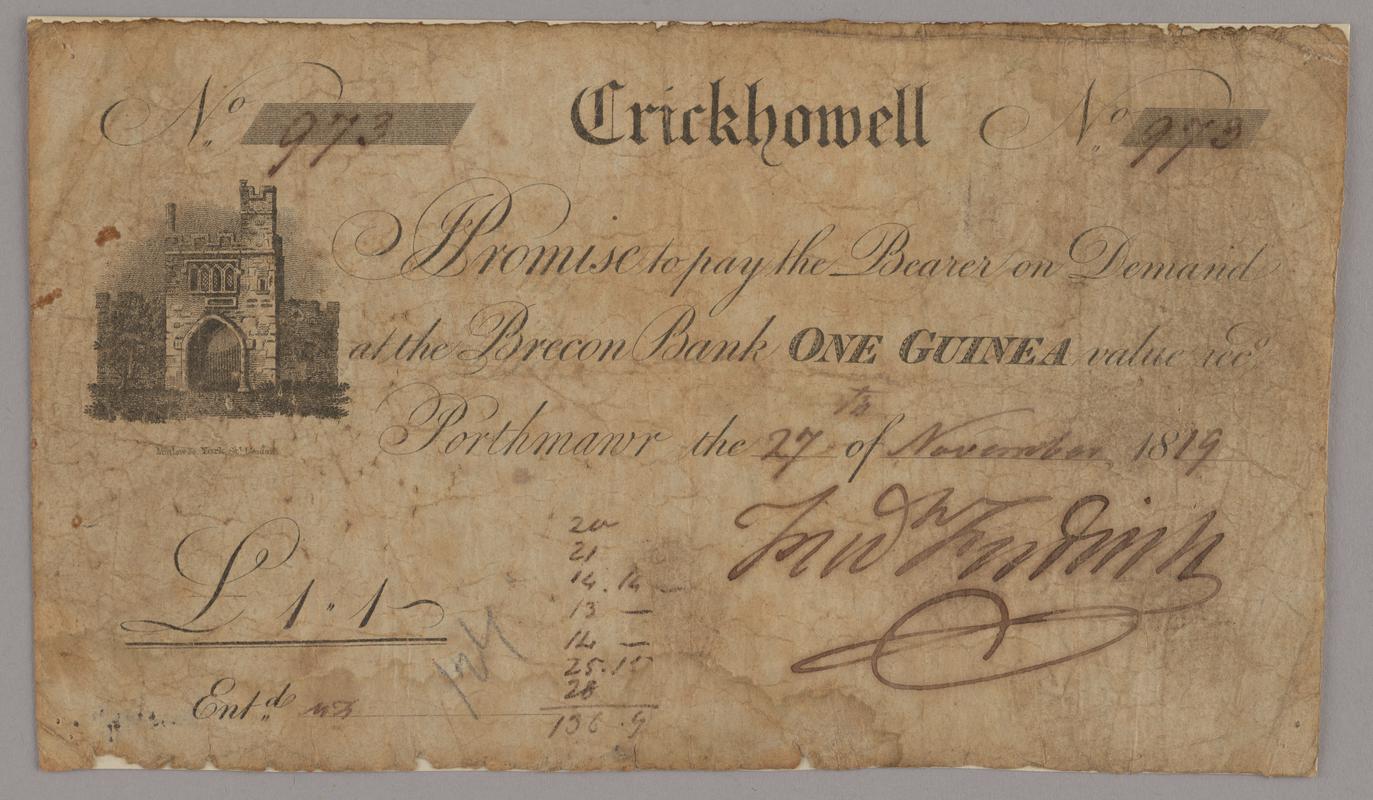 No. 973 Crickhowell No. 973
I Promise to pay the Bearer on Demand
at the Brecon Bank ONE GUINEA value recd.
Porthmawr the 27th of November 1819
20
21
14.14 —
13 —
14 —
25.15
28
136.9
£1.1
Entd.